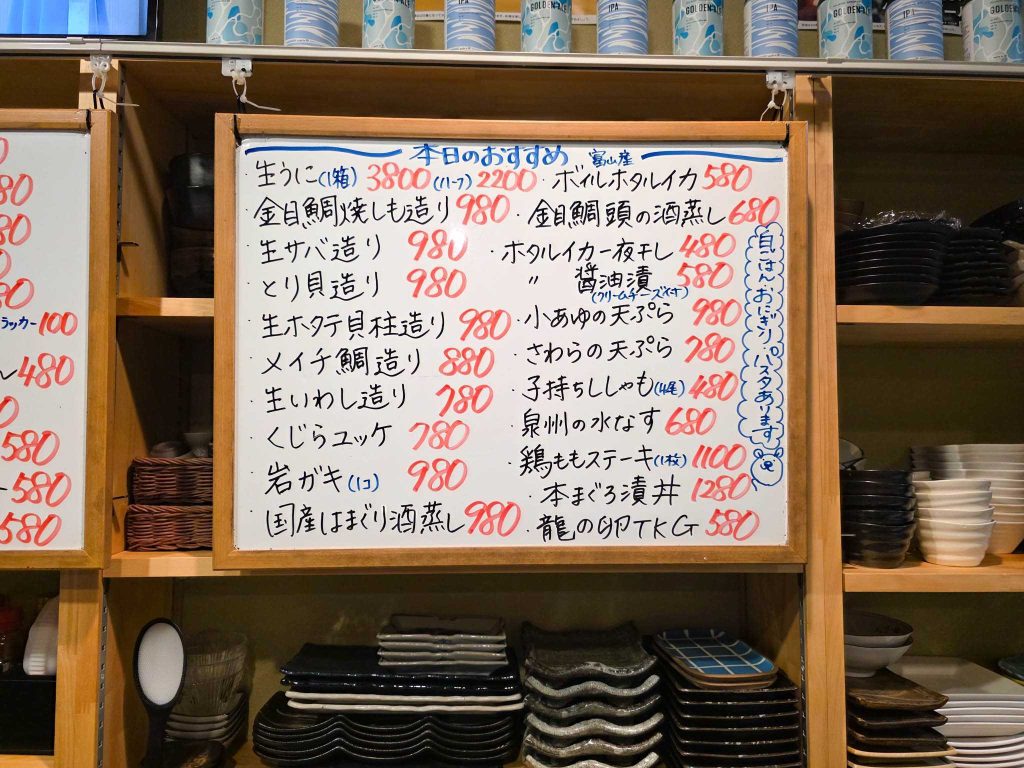 本日のおすすめ
・生うに(1箱) 3800 (ハーフ) 2200
・金目鯛焼しも造り 980
・生サバ造り 980
・とり貝造り 980
・生ホタテ貝柱造り 980
・メイチ鯛造り 880
・生いわし造り 780
・くじらユッケ 780
・岩ガキ(1コ) 980
・国産はまぐり酒蒸し 980
富山産
・ボイルホタルイカ 580
・金目鯛頭の酒蒸し 680
・ホタルイカ一夜干し 480
〃 醤油漬 580
(クリームチーズ付き)
・小あゆの天ぷら 980
・さわらの天ぷら 780
・子持ちししゃも(4尾) 480
・泉州の水なす 680
・鶏ももステーキ(1枚) 1100
・本まぐろ漬丼 1280
・龍の卵TKG 580
白ごはん、おにぎり、パスタあります
ラッカー 100
480
580
580
580
GOLDEN ALE
IPA
GOLDEN ALE
IPA
GOLDEN ALE
IPA
GOLDEN ALE